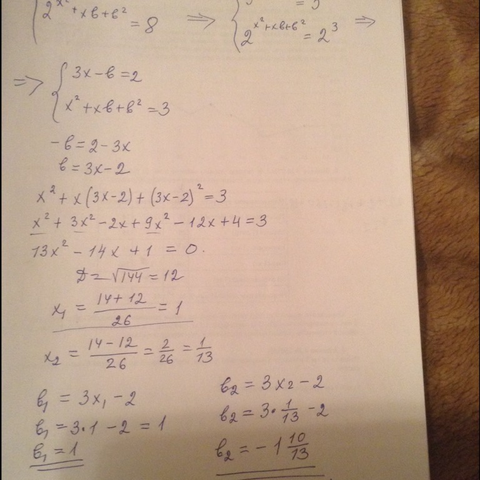 2^(x²+xb+b²) = 8 ⇒ 2^(x²+xb+b²) = 2³ ⇒
⇒ { 3x-b=2
x²+xb+b²=3
-b=2-3x
b=3x-2
x²+x(3x-2)+(3x-2)²=3
x²+3x²-2x+9x²-12x+4=3
13x²-14x+1=0.
D=√144=12
x₁ = (14+12)/26 = 1
x₂ = (14-12)/26 = 2/26 = 1/13
b₁ = 3x₁-2
b₁=3·1-2=1
b₁=1
b₂ = 3x₂-2
b₂=3·1/13-2
b₂=-1 10/13